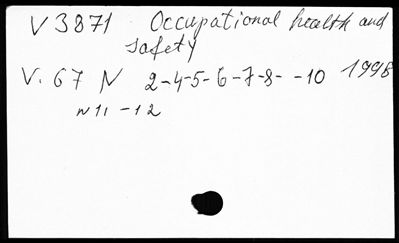 V 3871 Occupational health and
safety
V. 67 N 2-4-5-6-7-8- -10 1998
N 11 -12